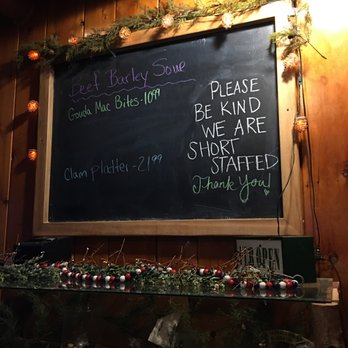 Beef Barley Soup
Gouda Mac Bites - 10.99
Clam platter - 21.99
PLEASE
BE KIND
WE ARE
SHORT
STAFFED
Thank you!
OPEN